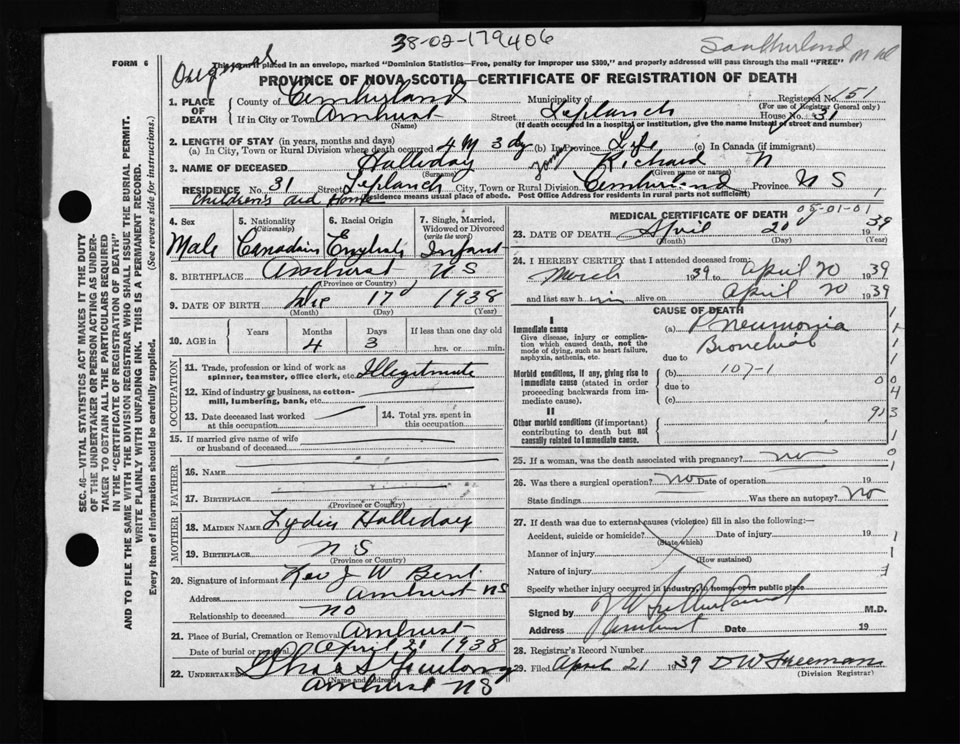 38-02-179406
Original
FORM 6
This form if placed in an envelope, marked "Dominion Statistics—Free, penalty for improper use $300," and properly addressed will pass through the mail "FREE"
PROVINCE OF NOVA SCOTIA—CERTIFICATE OF REGISTRATION OF DEATH
1. PLACE OF DEATH
County of Cumberland Municipality of Registered No. 151
(For use of Registrar General only)
If in City or Town Amherst (Name) Street Leplanch House No. 31
(If death occurred in a hospital or institution, give the name instead of street and number)
2. LENGTH OF STAY (in years, months and days)
(a) In City, Town or Rural Division where death occurred 4 M 3 dy (b) In Province Life (c) In Canada (if immigrant)
3. NAME OF DECEASED Halliday (Surname) Richard (Given name or names)
RESIDENCE No. 31 Street Leplanch City, Town or Rural Division Cumberland Province N S
Childrens aid Home
Residence means usual place of abode. Post Office Address for residents in rural parts not sufficient)
4. Sex Male
5. Nationality (Citizenship) Canadain
6. Racial Origin English
7. Single, Married, Widowed or Divorced (write the word) Infant
8. BIRTHPLACE Amherst N S
(Province or Country)
9. DATE OF BIRTH Dec 17 1938
(Month) (Day) (Year)
10. AGE in Years Months 4 Days 3 If less than one day old hrs. or min.
OCCUPATION
11. Trade, profession or kind of work as spinner, teamster, office clerk, etc. Illegitimate
12. Kind of industry or business, as cotton-mill, lumbering, bank, etc.
13. Date deceased last worked at this occupation
14. Total yrs. spent in this occupation
15. If married give name of wife or husband of deceased
FATHER
16. Name
17. Birthplace
(Province or Country)
MOTHER
18. MAIDEN NAME Lydia Halliday
19. Birthplace N S
(Province or Country)
20. Signature of informant Rev J W Bent
Address Amherst NS
Relationship to deceased no
21. Place of Burial, Cremation or Removal Amherst
Date of burial or removal April 21 1938
22. UNDERTAKER
(Name and Address)
Amherst NS
MEDICAL CERTIFICATE OF DEATH
23. DATE OF DEATH April 20 1939
(Month) (Day) (Year)
24. I HEREBY CERTIFY that I attended deceased from:
March 1939 to April 20 1939
and last saw him alive on April 20 1939
CAUSE OF DEATH
I
Immediate cause
Give disease, injury or complication which caused death, not the mode of dying, such as heart failure, asphyxia, asthenia, etc.
(a) Pneumonia
Bronchial
due to
Morbid conditions, if any, giving rise to immediate cause (stated in order proceeding backwards from immediate cause).
(b) 107-1
due to
(c)
II
Other morbid conditions (if important) contributing to death but not causally related to immediate cause.
25. If a woman, was the death associated with pregnancy? no
26. Was there a surgical operation? no Date of operation 19
State findings Was there an autopsy? no
27. If death was due to external causes (violence) fill in also the following:—
Accident, suicide or homicide? Date of injury 19
(State which)
Manner of injury
(How sustained)
Nature of injury
Specify whether injury occurred in industry, in home, or in public place
Signed by M.D.
Address Amherst Date 19
28. Registrar's Record Number
29. Filed April 21 1939 D W Freeman
(Division Registrar)
SEC. 46—VITAL STATISTICS ACT MAKES IT THE DUTY
OF THE UNDERTAKER OR PERSON ACTING AS UNDER-
TAKER TO OBTAIN ALL THE PARTICULARS REQUIRED
IN THE "CERTIFICATE OF REGISTRATION OF DEATH"
AND TO FILE THE SAME WITH THE DIVISION REGISTRAR WHO SHALL ISSUE THE BURIAL PERMIT.
WRITE PLAINLY WITH UNFADING INK. THIS IS A PERMANENT RECORD.
Every item of information should be carefully supplied. (See reverse side for instructions.)